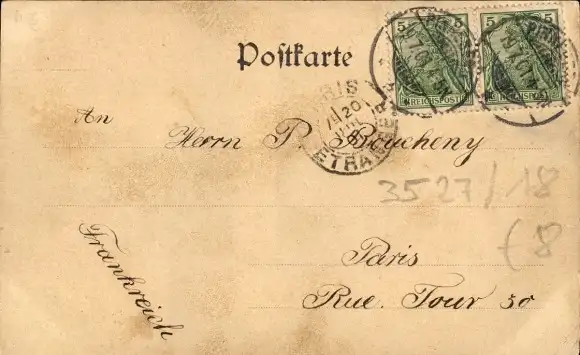 Postkarte
5 5
REICHSPOST
An
Herrn P. Boucheny
PARIS
20
ETRANGER
3527/18
(8
Paris
Rue Tour 50
Frankreich